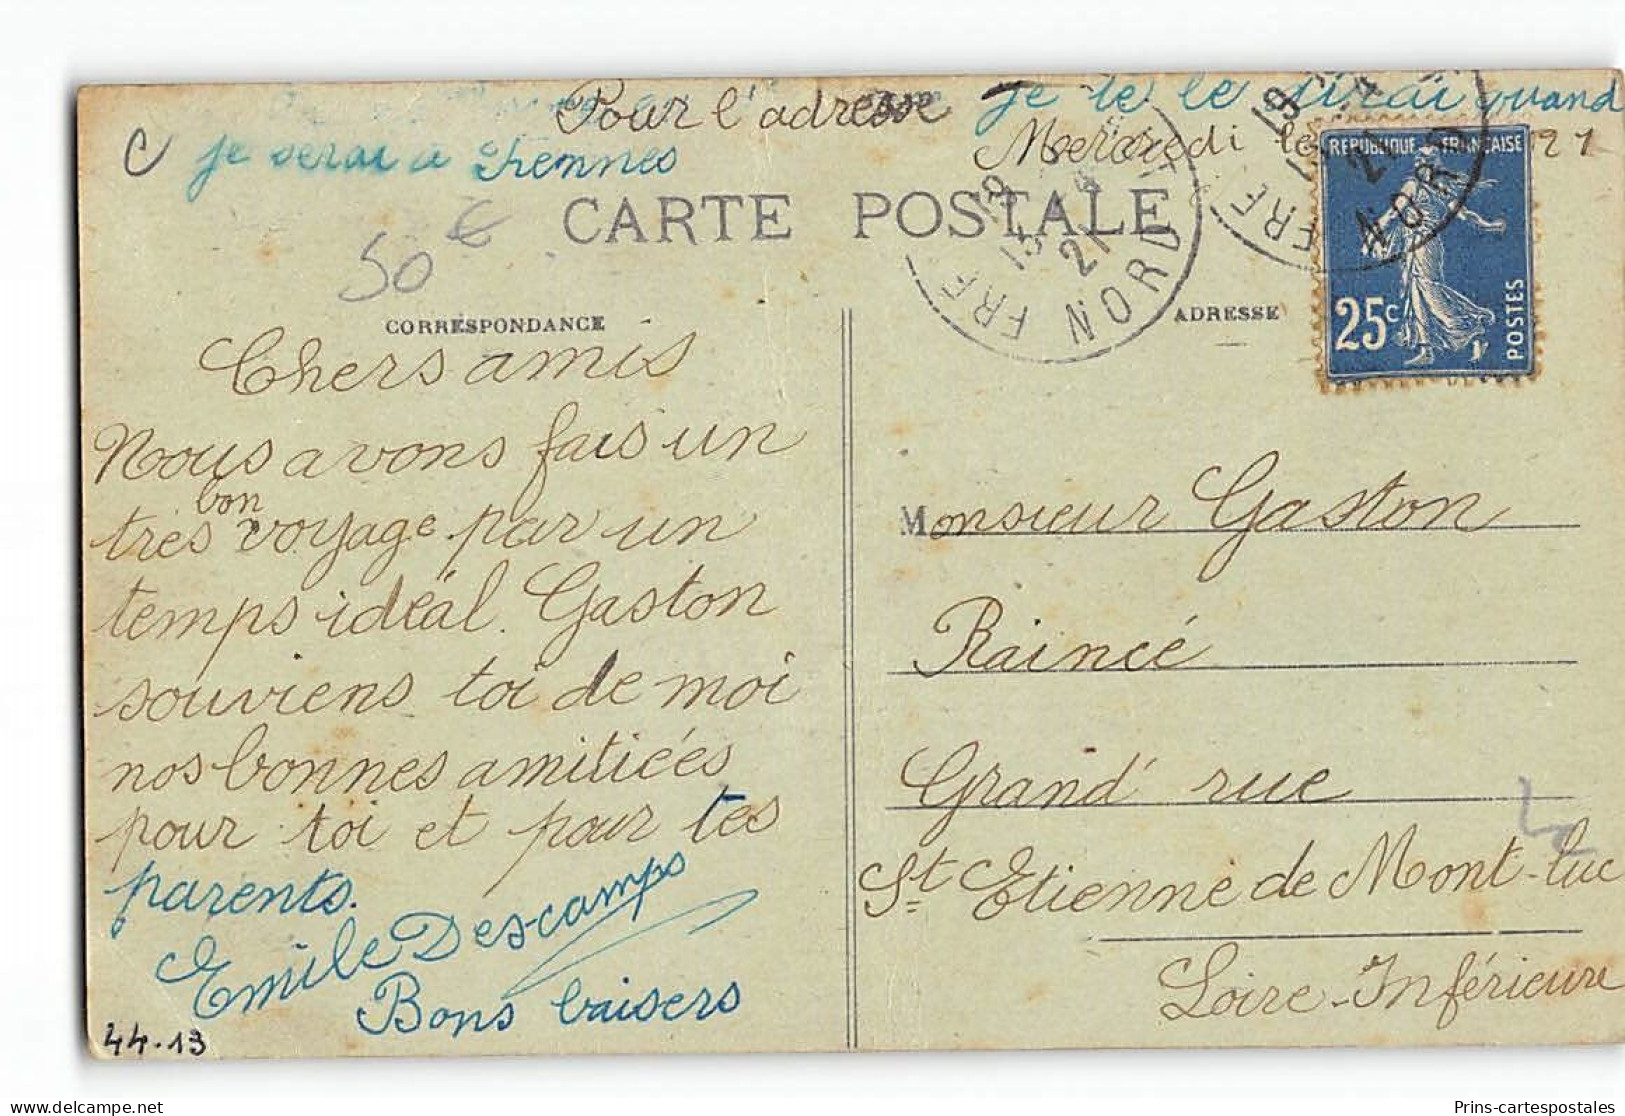 Pour l'adresse je te le dirai quand
je serai à Rennes
Mercredi le 21
CARTE POSTALE
50 €
CORRESPONDANCE
ADRESSE
REPUBLIQUE FRANÇAISE
25c
POSTES
19 21
NORD
19 21
NORD
Chers amis
Nous avons fais un
bon
très voyage par un
temps idéal. Gaston
souviens toi de moi
nos bonnes amitiées
pour toi et pour tes
parents.
Emile Descamps
Bons baisers
44-13
Monsieur Gaston
Raincé
Grand' rue
St Etienne de Mont-luc
Loire-Inférieure
delcampe.net
Prins-cartespostales